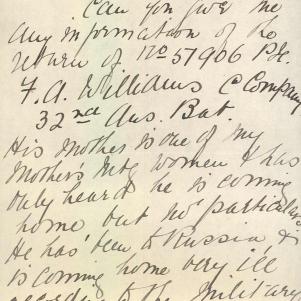 Can you give me
any information of the
return of No 57906 Pte.
F. A. Williams C Company
32nd Aus. Bat.
His Mother is one of my
Mothers Mtg women & has
only heard he is coming
home but no particulars
He has been to Russia, &
is coming home very ill
according to the Military